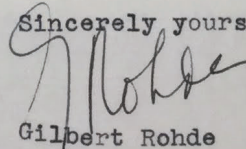 Sincerely yours
G Rohde
Gilbert Rohde